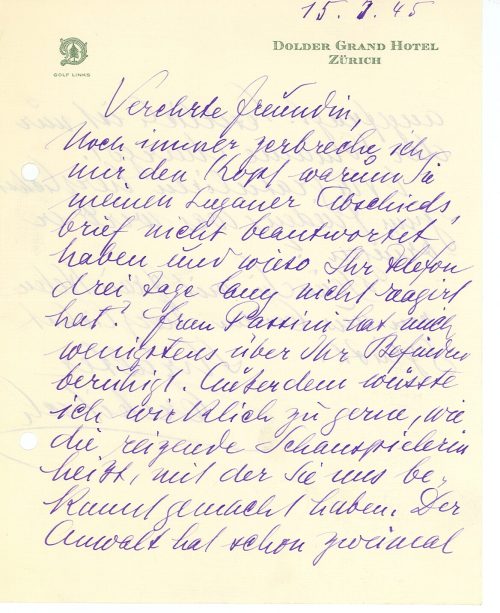 15. 1. 45
GOLF LINKS
DOLDER GRAND HOTEL
ZÜRICH
Verehrte Freundin,
Noch immer zerbreche ich
mir den Kopf warum Sie
meinen Luganer Abschieds,
brief nicht beantwortet
haben und wieso Ihr Telefon
drei Tage lang nicht reagirt
hat? Frau Passini hat mich
wenigstens über Ihr Befinden
beruhigt. Außerdem wüsste
ich wirklich zu gerne, wie
die reizende Schauspielerin
heißt, mit der Sie uns be,
kannt gemacht haben. Der
Anwalt hat schon zweimal